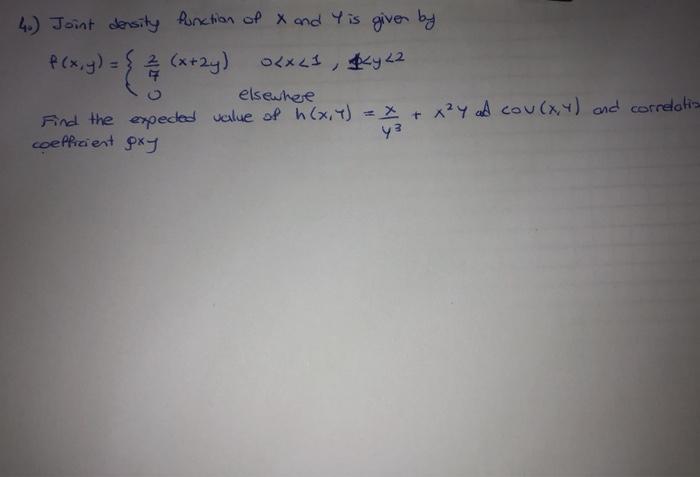 4.) Joint density function of X and Y is given by
f(x,y) = { 2/7 (x+2y) 0<x<1, 1<y<2
0 elsewhere
Find the expected value of h(x,Y) = x/y³ + x²Y and cov(X,Y) and correlatio
coefficient ρxy